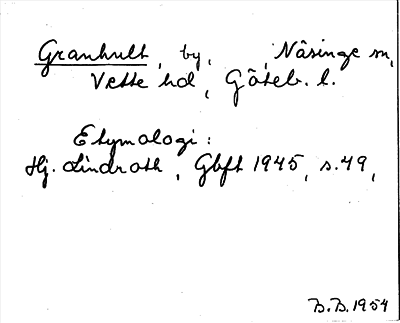 Granhult, by, Näsinge sn,
Vette hd, Göteb. l.
Etymologi:
Hj. Lindroth, Gbft 1945, s. 49,
B.B. 1954